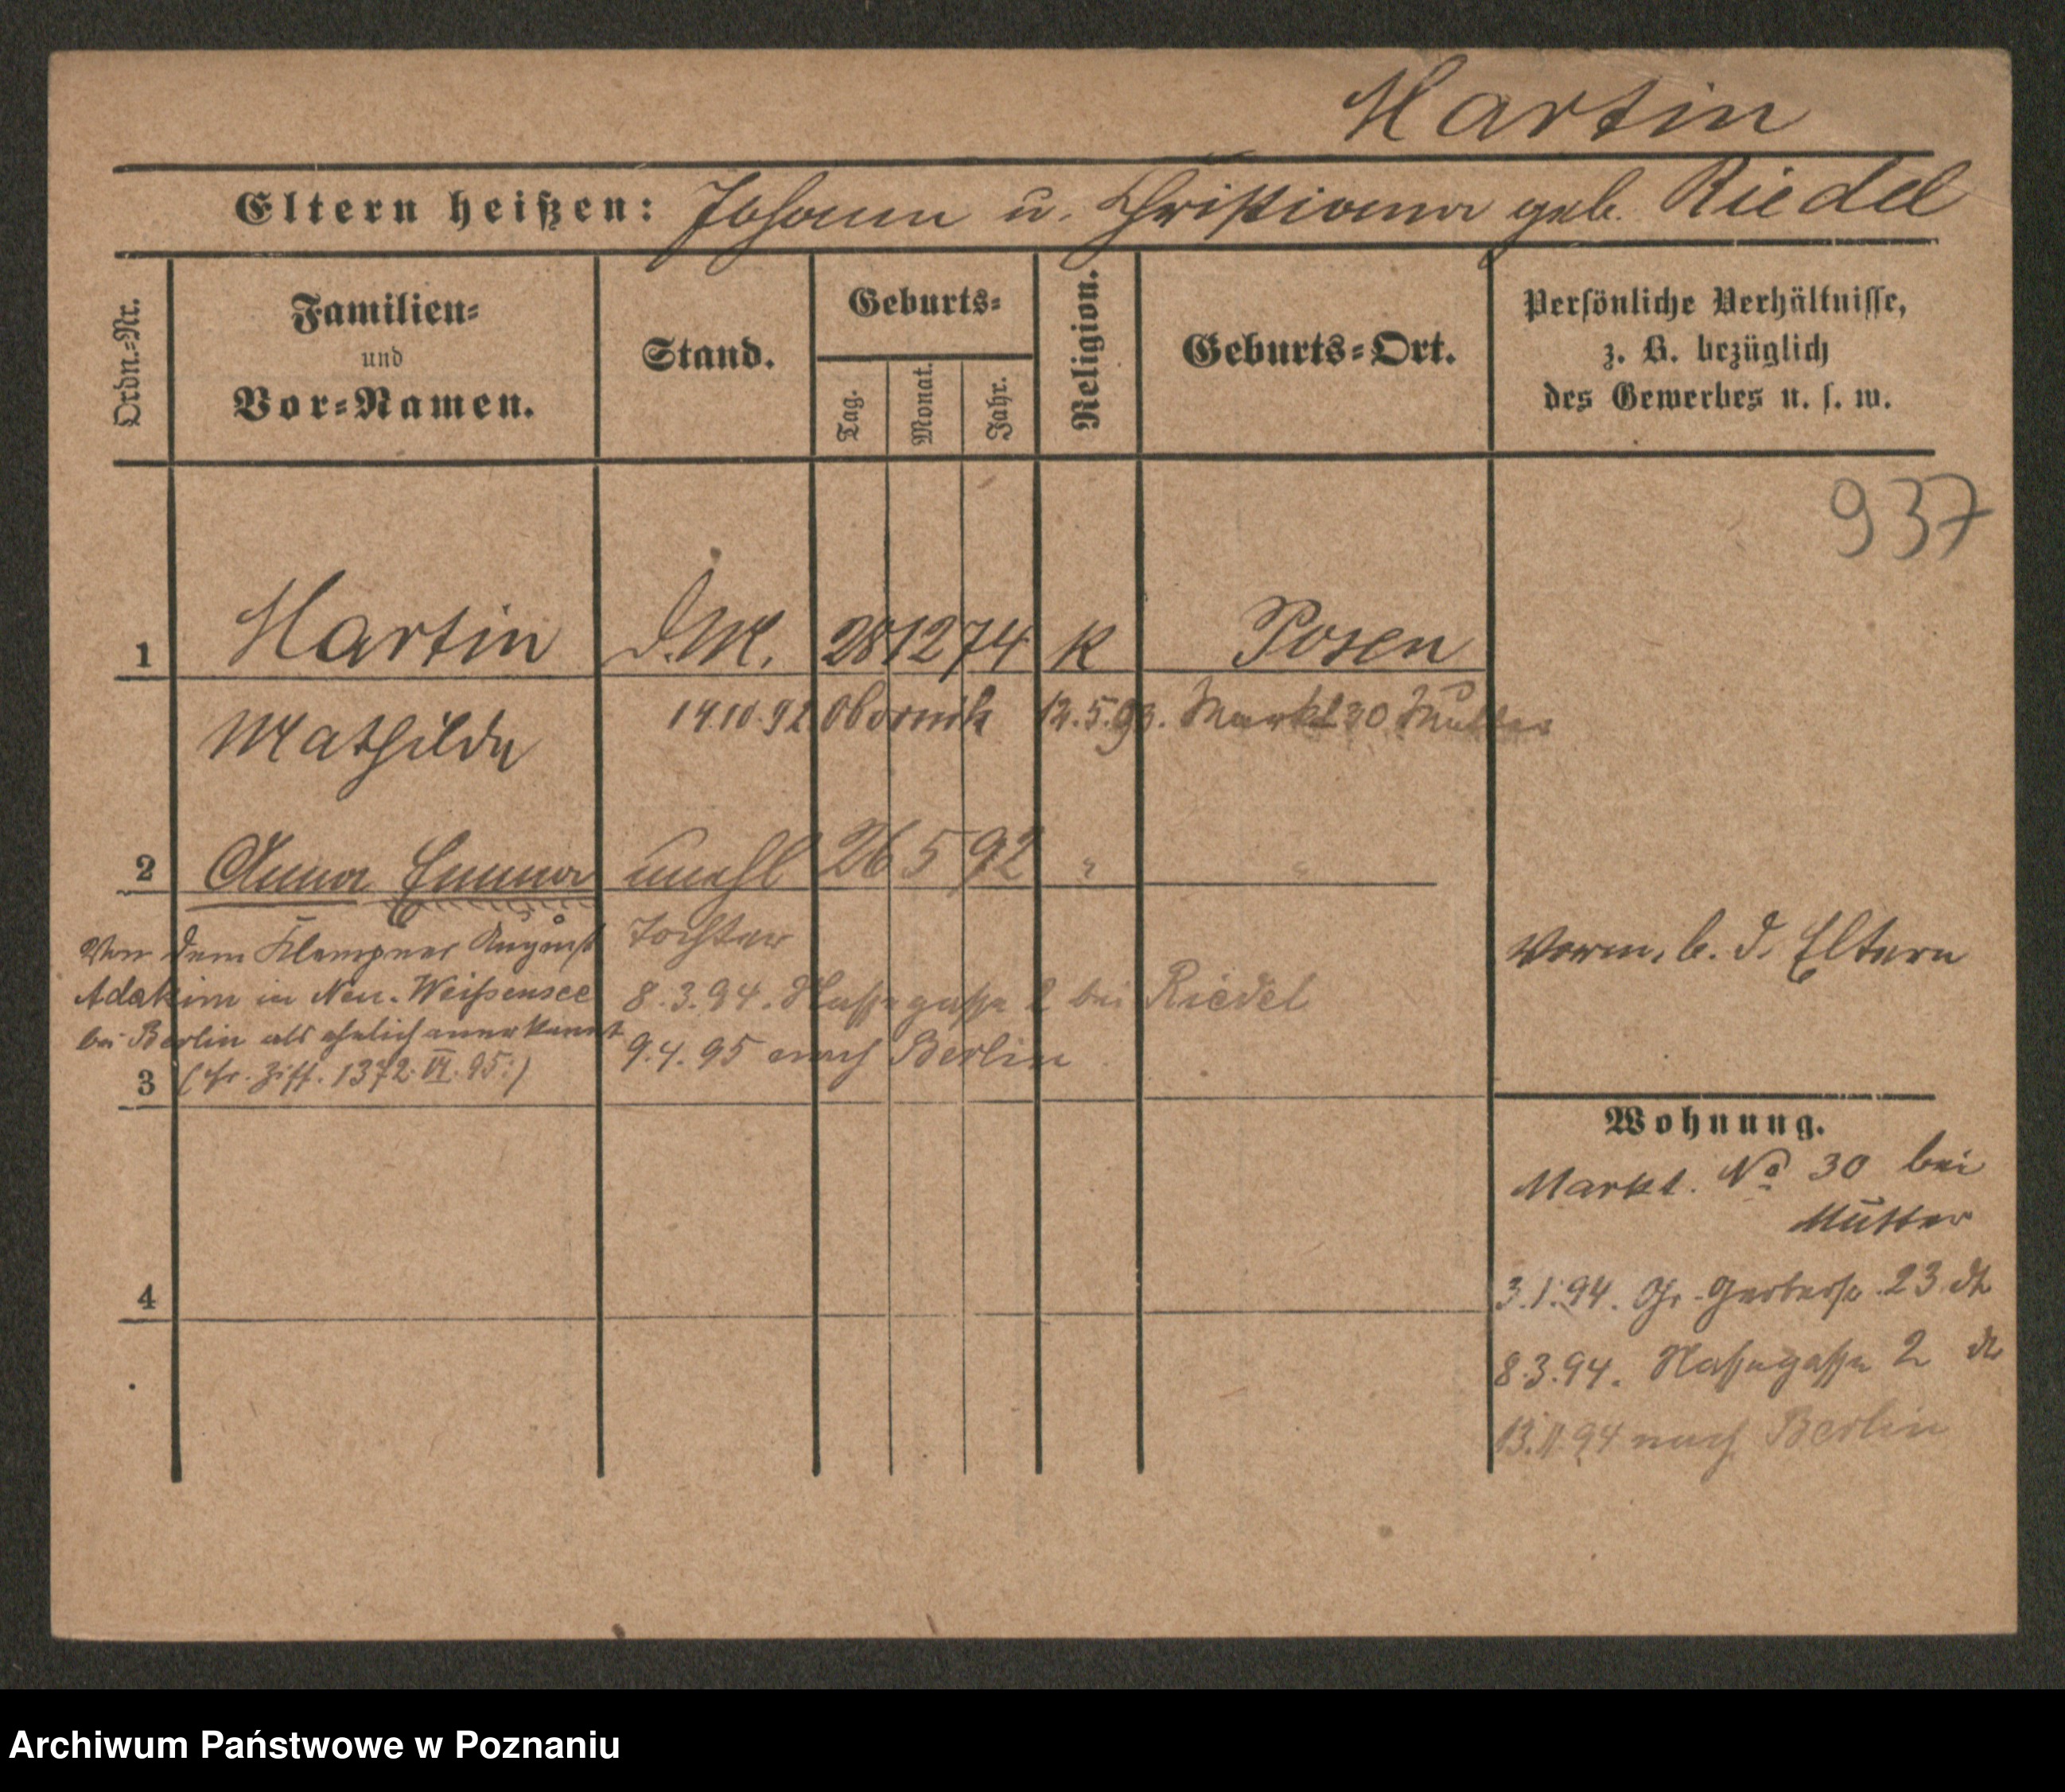 Martin
Eltern heißen: Johann u. Christiana geb. Riedel
Ordn.-Nr.
Familien-
und
Vor-Namen.
Stand.
Geburts-
Tag.
Monat.
Jahr.
Religion.
Geburts-Ort.
Persönliche Verhältnisse,
z. B. bezüglich
des Gewerbes u. s. w.
937
1 Martin D.M. 28 12 74 k Posen
Mathilde 14.10.92 Obornik 12.5.93. Markt 30 Mutter
2 Anna Emma unehl 26 5 92 " "
Tochter
Von dem Klempner August
Adakim in Neu-Weißensee
bei Berlin als ehelich anerkannt
3 (Tr. Ziff. 1372. VI. 95.)
8.3.94. Nassegasse 2 bei Riedel
9.4.95 nach Berlin
Vorm. b. d. Eltern
Wohnung.
Markt. No 30 bei
Mutter
3.1.94. Gr. Gerberstr. 23
8.3.94. Nassegasse 2
13.11.94 nach Berlin
4
Archiwum Państwowe w Poznaniu